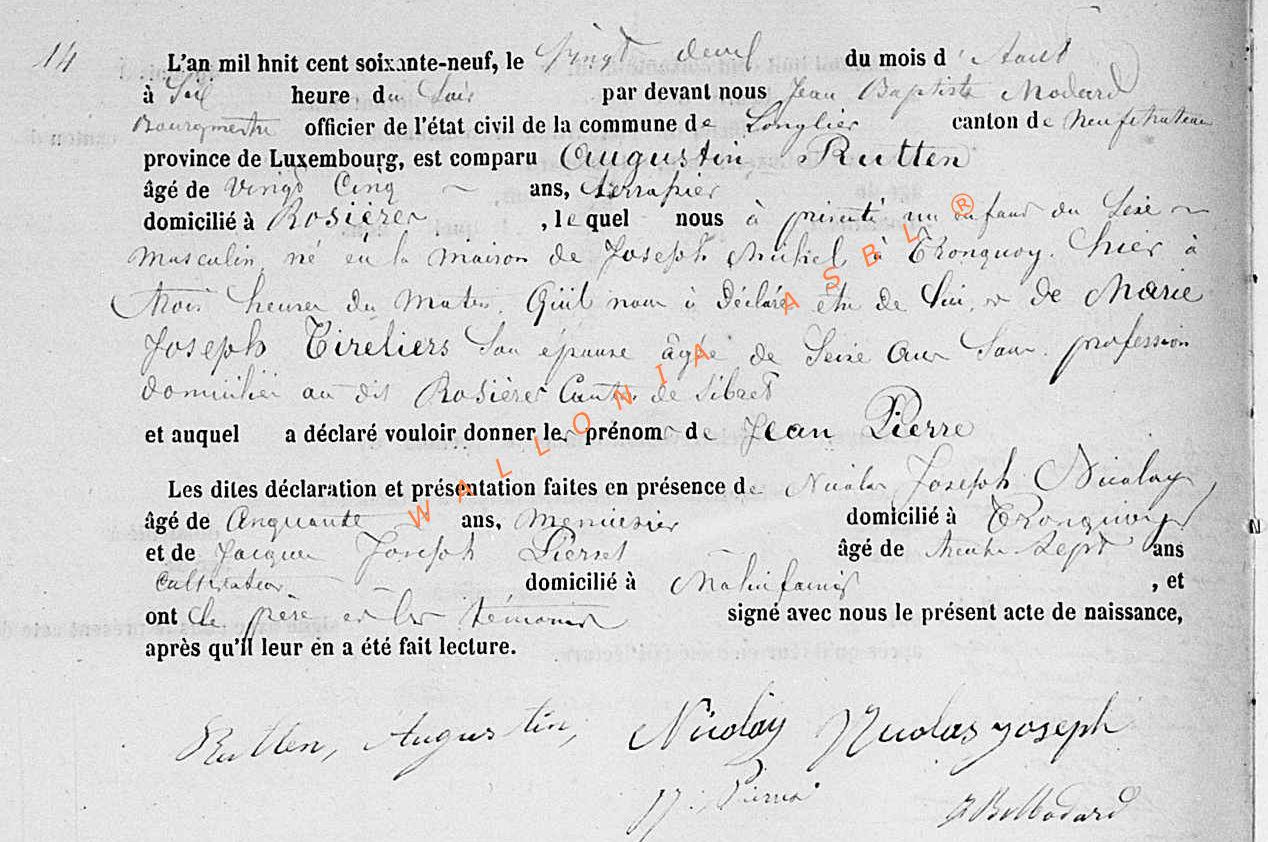 14
L'an mil hnit cent soixante-neuf, le Vingt deux du mois d'Aout
à Six heure du Soir par devant nous Jean Baptiste Modard
Bourgmestre officier de l'état civil de la commune de Longlier canton de Neufchateau
province de Luxembourg, est comparu Augustin Rutten
âgé de Vingt Cinq ans, terrassier
domicilié à Rosières, lequel nous à présenté un enfant du Sexe
Masculin, né en la maison de Joseph Michel à Tronquoy. hier à
trois heures du Matin. Qu'il nous à Déclaré être de Lui, & de Marie
Joseph Tireliers Son épouse âgée de Seize Ans Sans profession
domiciliée au dit Rosières Canton de Sibret
et auquel a déclaré vouloir donner les prénoms de Jean Pierre
Les dites déclaration et présentation faites en présence de Nicolas Joseph Nicolay
âgé de Cinquante ans, Menuisier domicilié à Tronquoy
et de Jacques Joseph Pierret âgé de trente Sept ans
Cultivateur domicilié à Malinfaing, et
ont Le père et les témoins signé avec nous le présent acte de naissance,
après qu'il leur en a été fait lecture.
Rutten, Augustin, Nicolay Nicolas joseph
JJ. Pierret JB Modard
WALLONIA ASBL ®